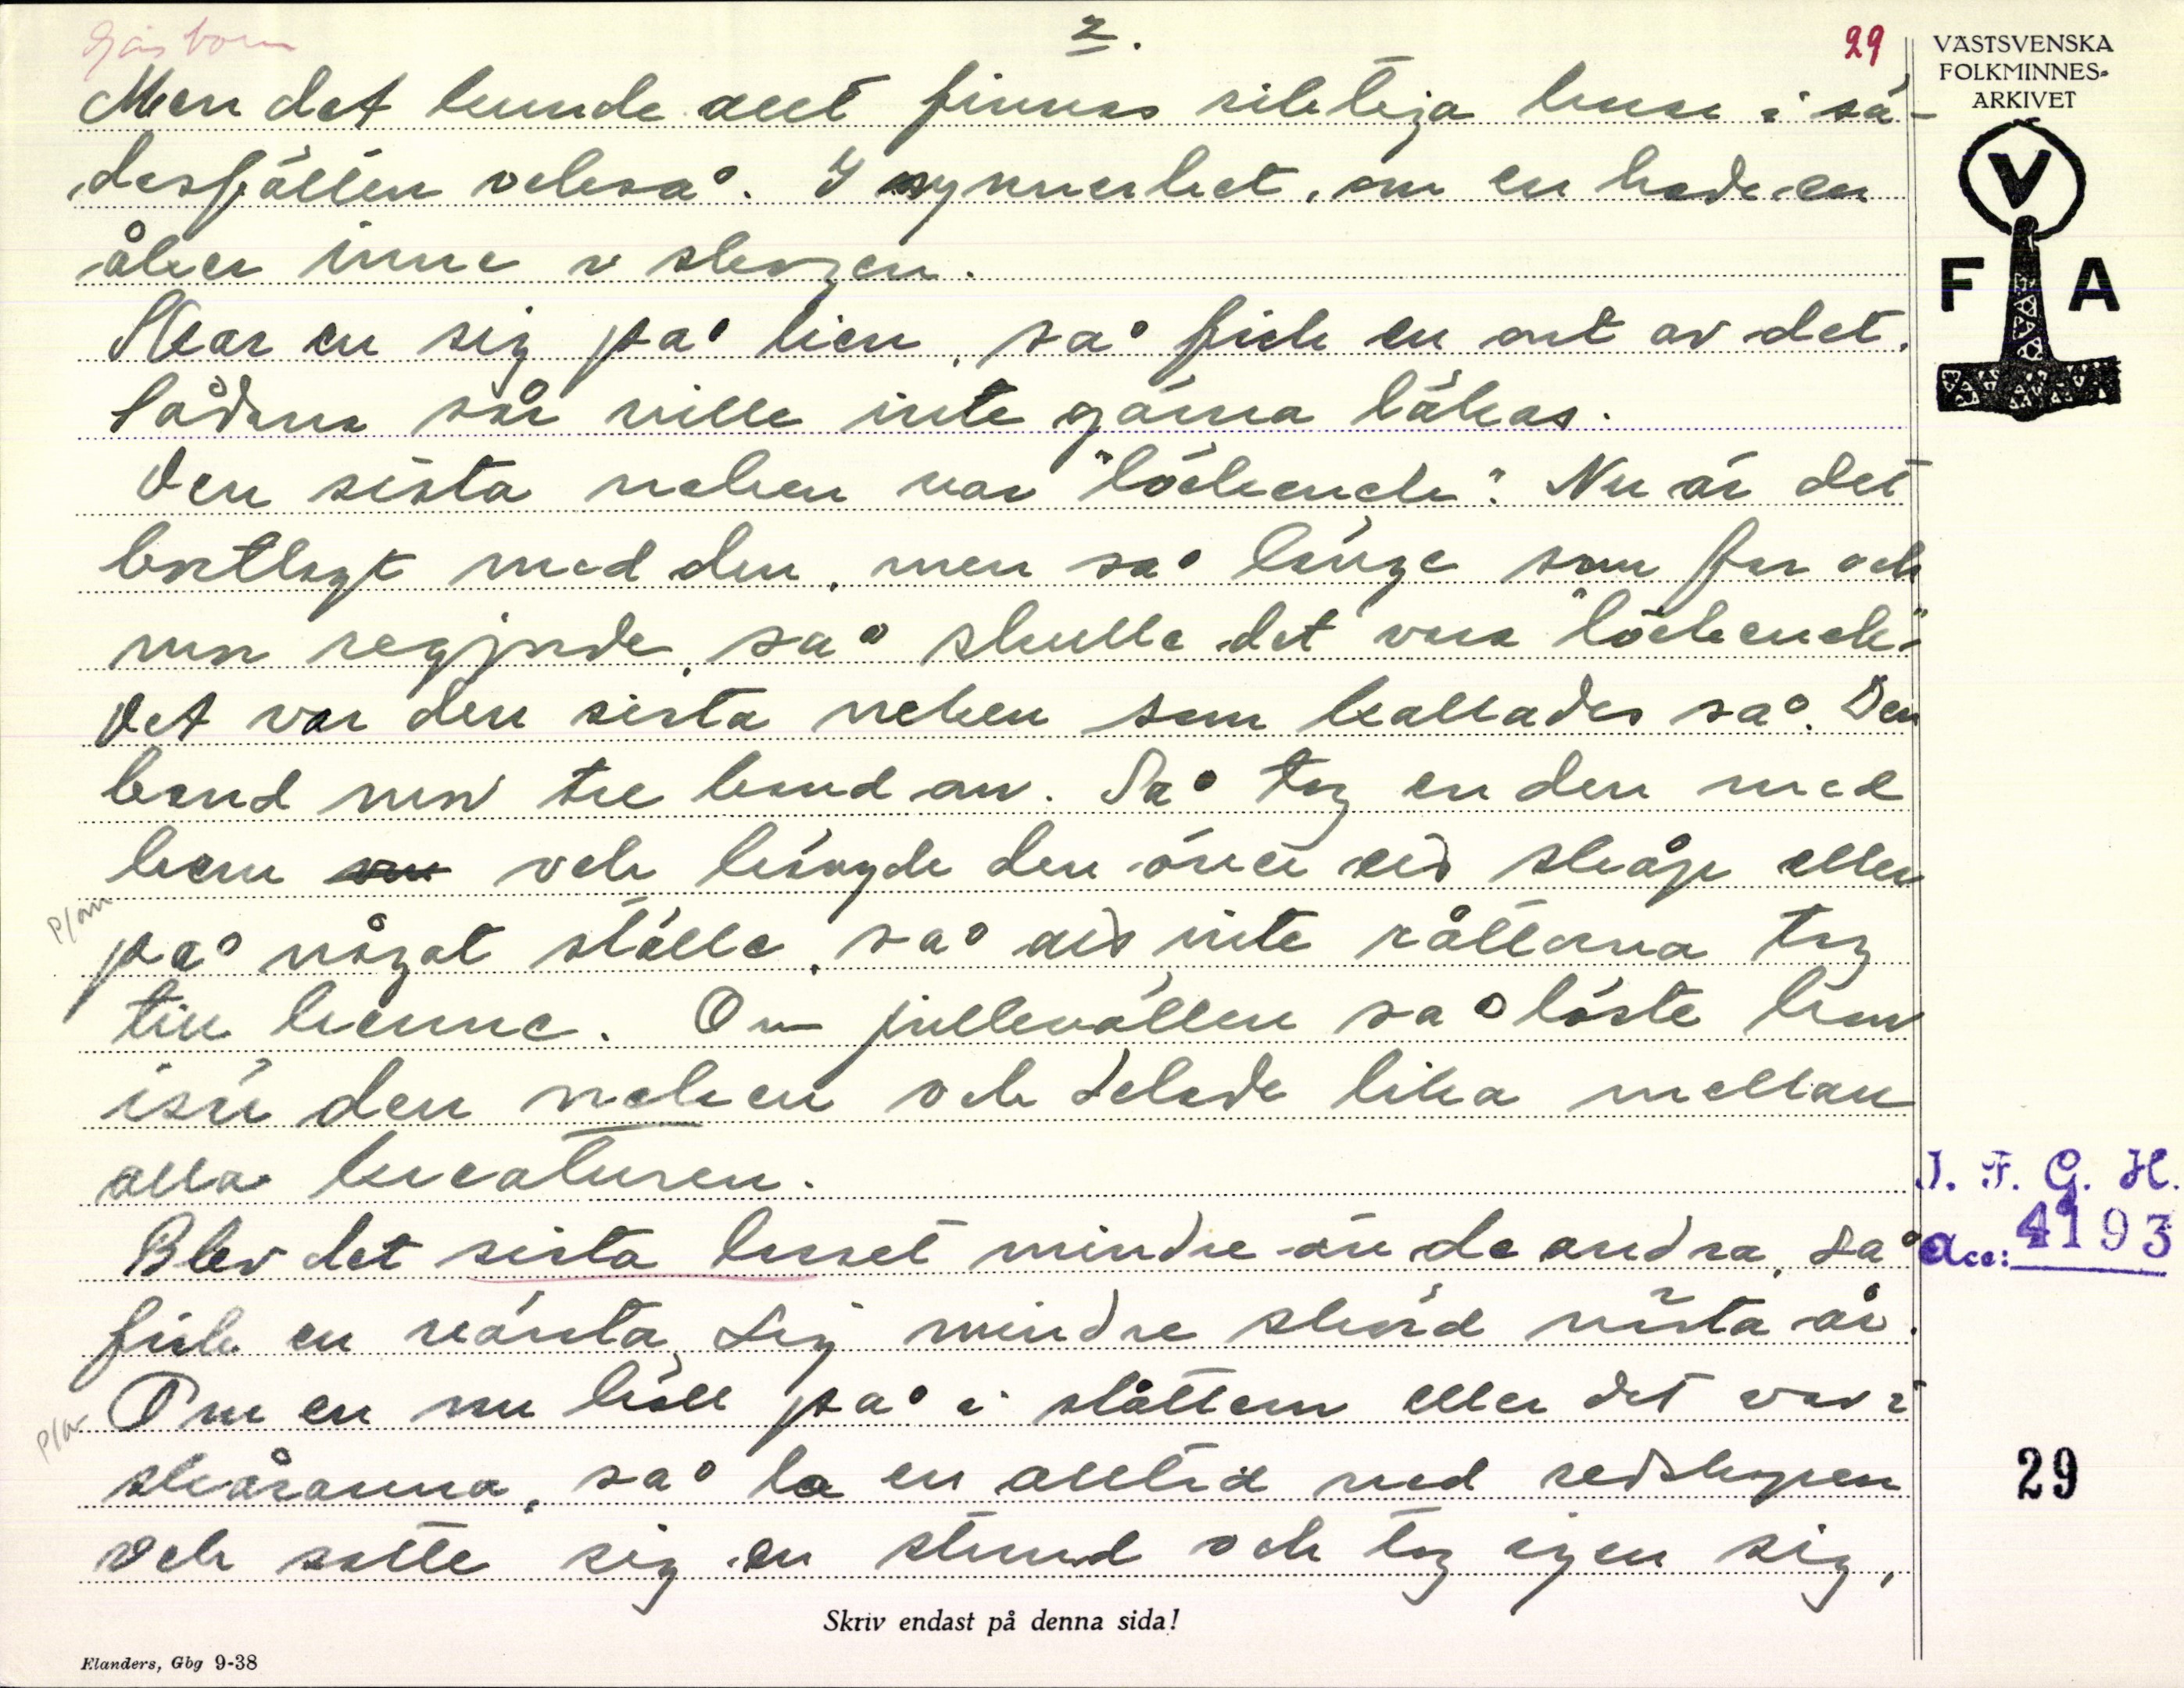 Gåsborn
2.
29
VÄSTSVENSKA
FOLKMINNES-
ARKIVET
V
F A
Men det kunde allt finnas sileteja huse i sä-
desfälten också. I synnerhet, om en hade en
åker inne i skogen.
Skar en sig på lien, så fick en ont av det.
Sådana sår ville inte gärna läkas.
Den sista neken var "löckenek". Nu är det
bortlagt med den, men så länge som far och
mor regjerade, så skulle det vara "löckenek"
Det var den sista neken som kallades så. Den
band men tre band om. Så tog en den med
hem och hängde den över ett skåp eller
på något ställe, så att inte råttorna tog
till henne. Om julkvällen så löste han
isär den neken och delade lika mellan
alla kreaturen.
Blev det sista lasset mindre än de andra, så
fick en vänta sig mindre skörd nästa år.
Om en nu höll på i slåttern eller det var i
skåranna, så la en alltid ned redskapen
och satte sig en stund och tog igen sig,
I. F. G. H.
Acc: 4193
29
Skriv endast på denna sida!
Elanders, Gbg 9-38